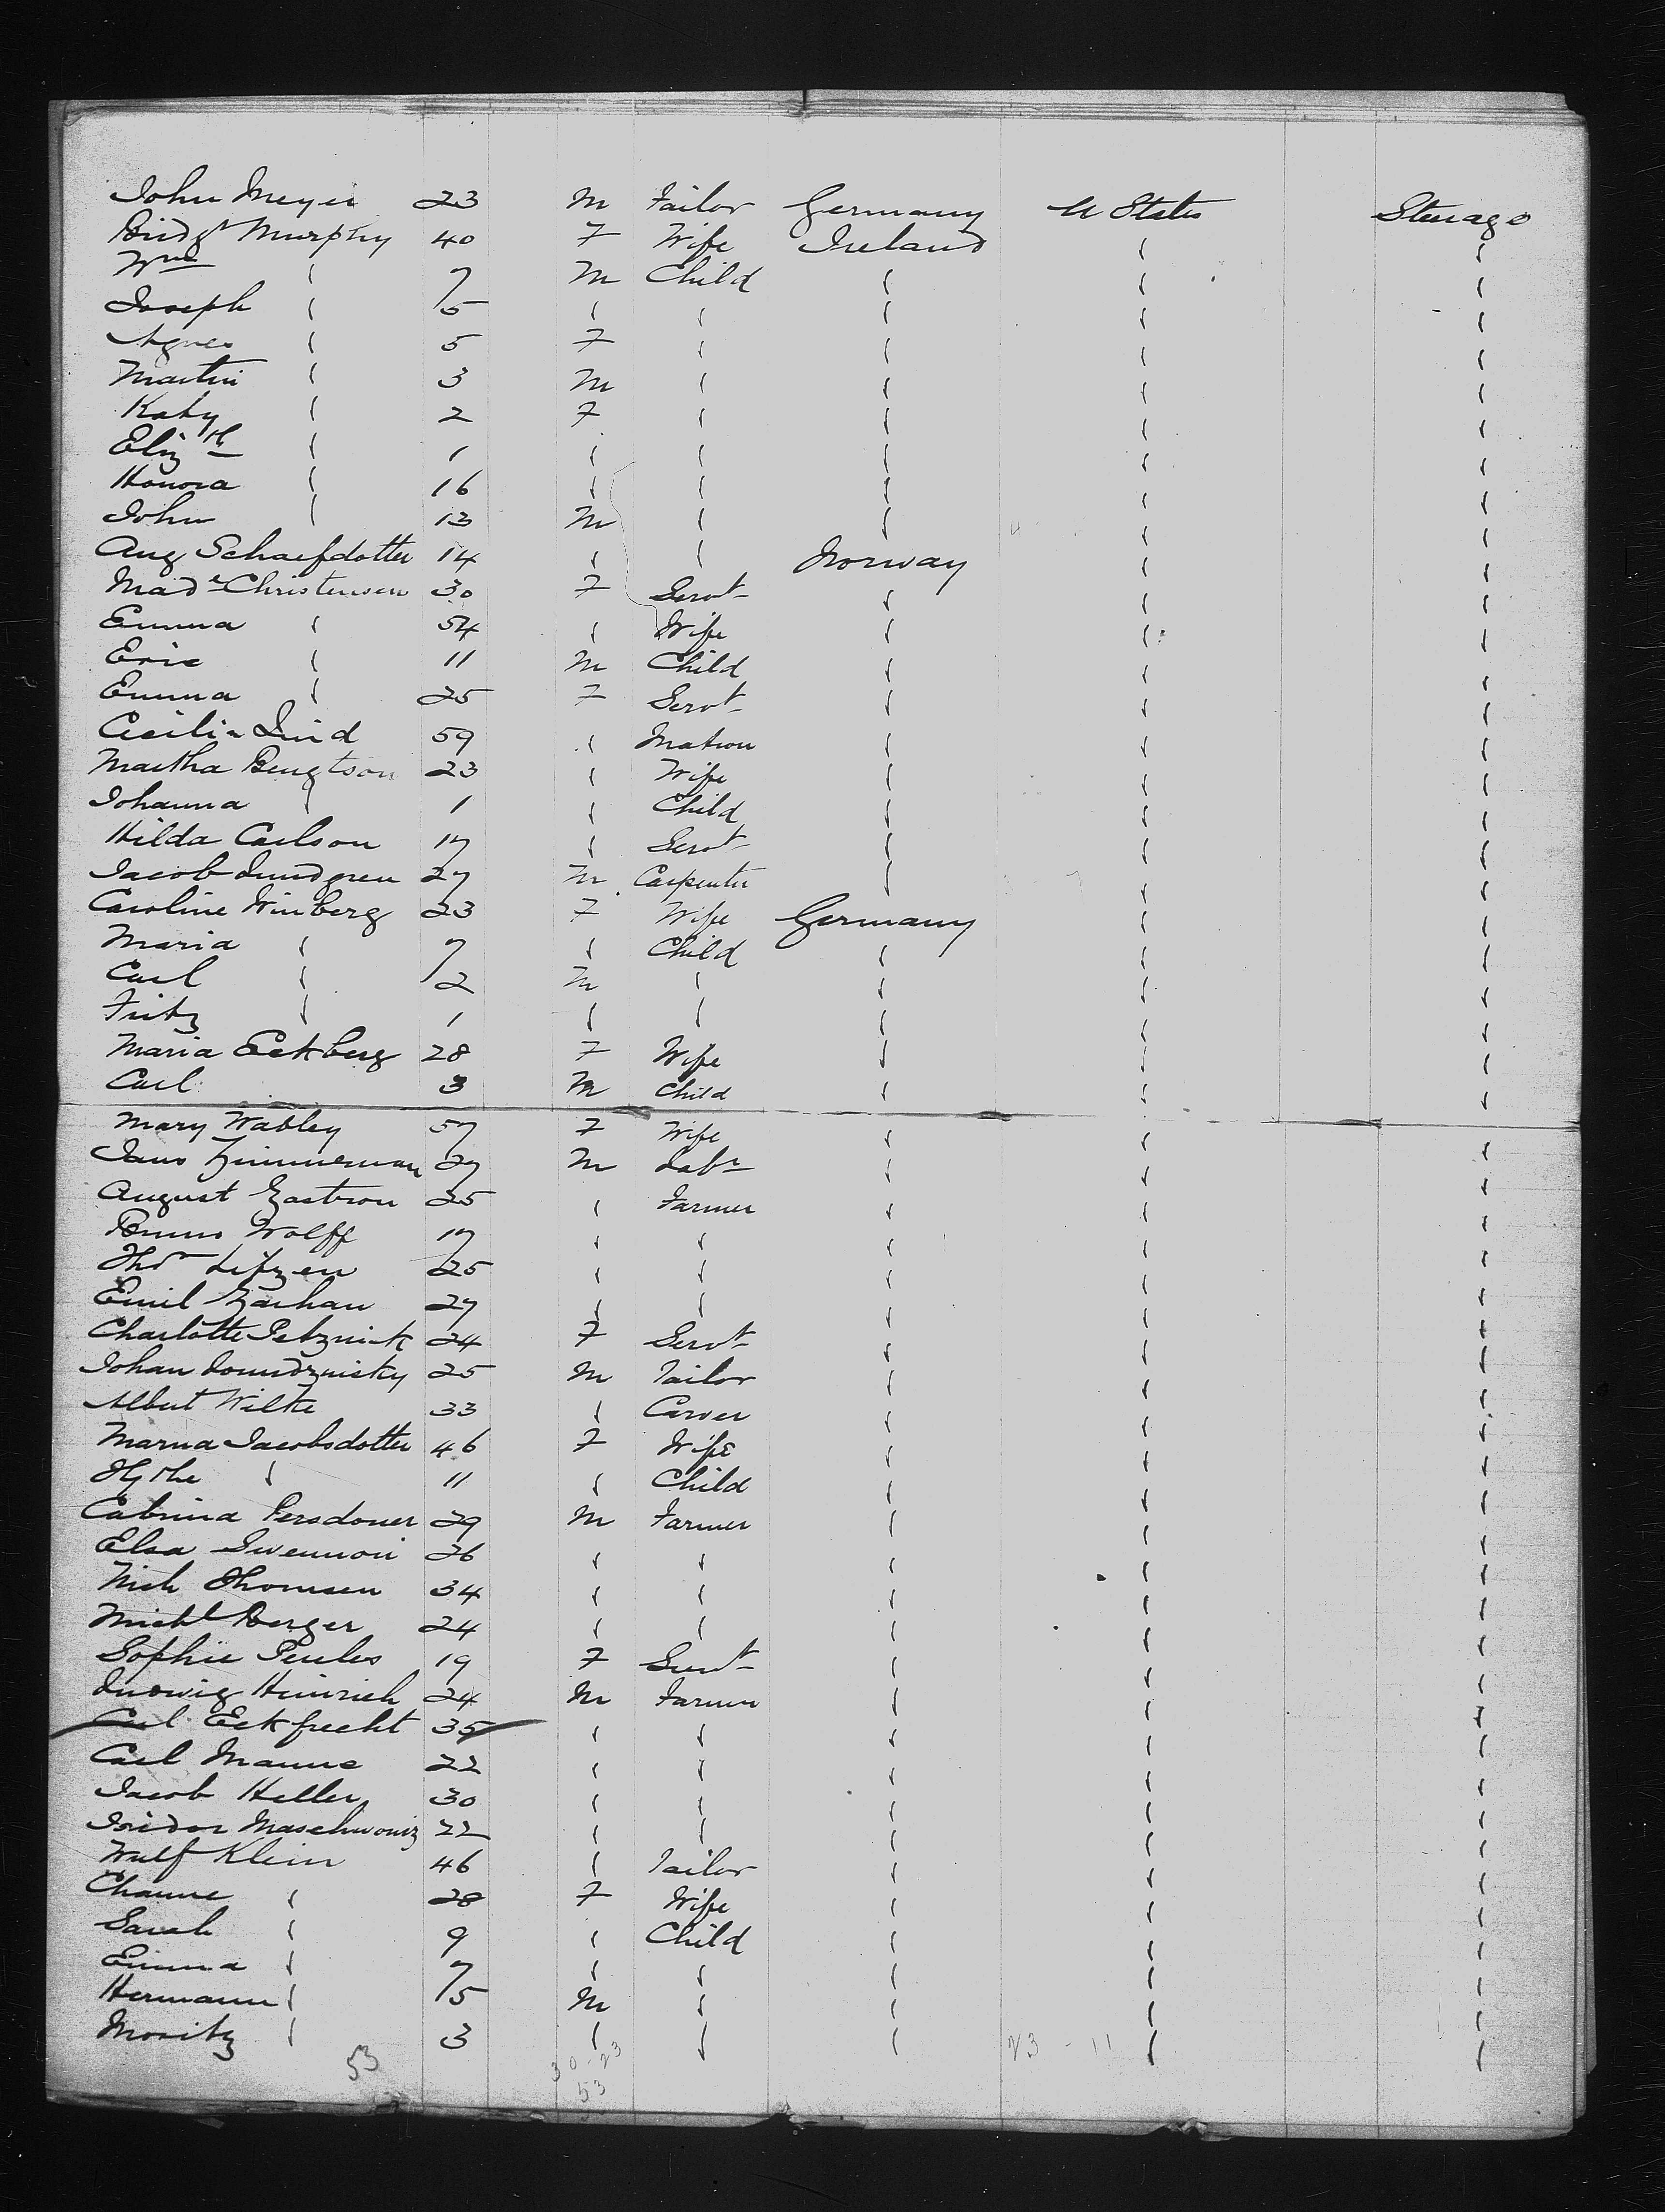 John Meyer 23 M Tailor Germany U States Steerage
Bridgt Murphy 40 F Wife Ireland " "
Wm " 7 M Child " " "
Joseph " 5 " " " " "
Agnes " 5 F " " " "
Martin " 3 M " " " "
Katy " 2 F " " " "
Elizth " 1 " " " " "
Honora " 16 " " " " "
John " 13 M " " " "
Aug Schaefdotter 14 " " Norway " "
Made Christensen 30 F Servt " " "
Emma " 54 " Wife " " "
Eric " 11 M Child " " "
Emma " 25 F Servt " " "
Cecilia Lind 59 " Matron " " "
Martha Bengtson 23 " Wife " " "
Johanna " 1 " Child " " "
Hilda Carlson 17 " Servt " " "
Jacob Lundgren 27 M Carpenter " " "
Caroline Winberg 23 F Wife Germany " "
Maria " 7 " Child " " "
Carl " 2 M " " " "
Fritz " 1 " " " " "
Maria Eckberg 28 F Wife " " "
Carl 3 M Child " " "
Mary Wabley 57 F Wife " " "
Jans Zimmerman 27 M Labr " " "
August Zastrow 25 " Farmer " " "
Bruno Wolff 17 " " " " "
Thdr Litzen 25 " " " " "
Emil Zachau 27 " " " " "
Charlotte Petznick 24 F Servt " " "
Johan 25 M Tailor " " "
Albert Wilke 33 " Carver " " "
Marna Jacobsdotter 46 F Wife " " "
" 11 " Child " " "
Catrina Persdoner 29 M Farmer " " "
Elsa Swennon 26 " " " " "
Nich Thomsen 34 " " " " "
Michl Berger 24 " " " " "
Sophie Peules 19 F Servt " " "
Ludwig Heinrich 24 M Farmer " " "
Carl Eckfrecht 35 " " " " "
Carl Manne 22 " " " " "
Jacob Heller 30 " " " " "
Isidor Maschwowiz 22 " " " " "
Wulf Klein 46 " Tailor " " "
Channe " 28 F Wife " " "
Sarah " 9 " Child " " "
Emma " 7 " " " " "
Hermann " 5 M " " " "
Moritz " 3 " " " " "
53 30-23 23-11
53